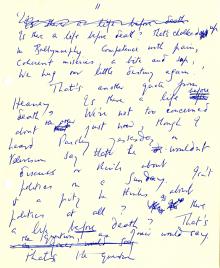 11
Is there a life before death
Is there a life before death? That's chalked up
in Ballymurphy. Competence with pain,
coherent miseries, a bite and sup,
We hug our little destiny again,
That's another quote from
Heaney. Is there a life before
death? We're not too concerned
about the other just now, though I
heard Paisley yesterday on
Television say that he wouldn't
discuss or think about
politics on a Sunday. Isn't
it a pity he thinks about
politics at all? Is there
a life before death? That's
the question, as would say
that's the question